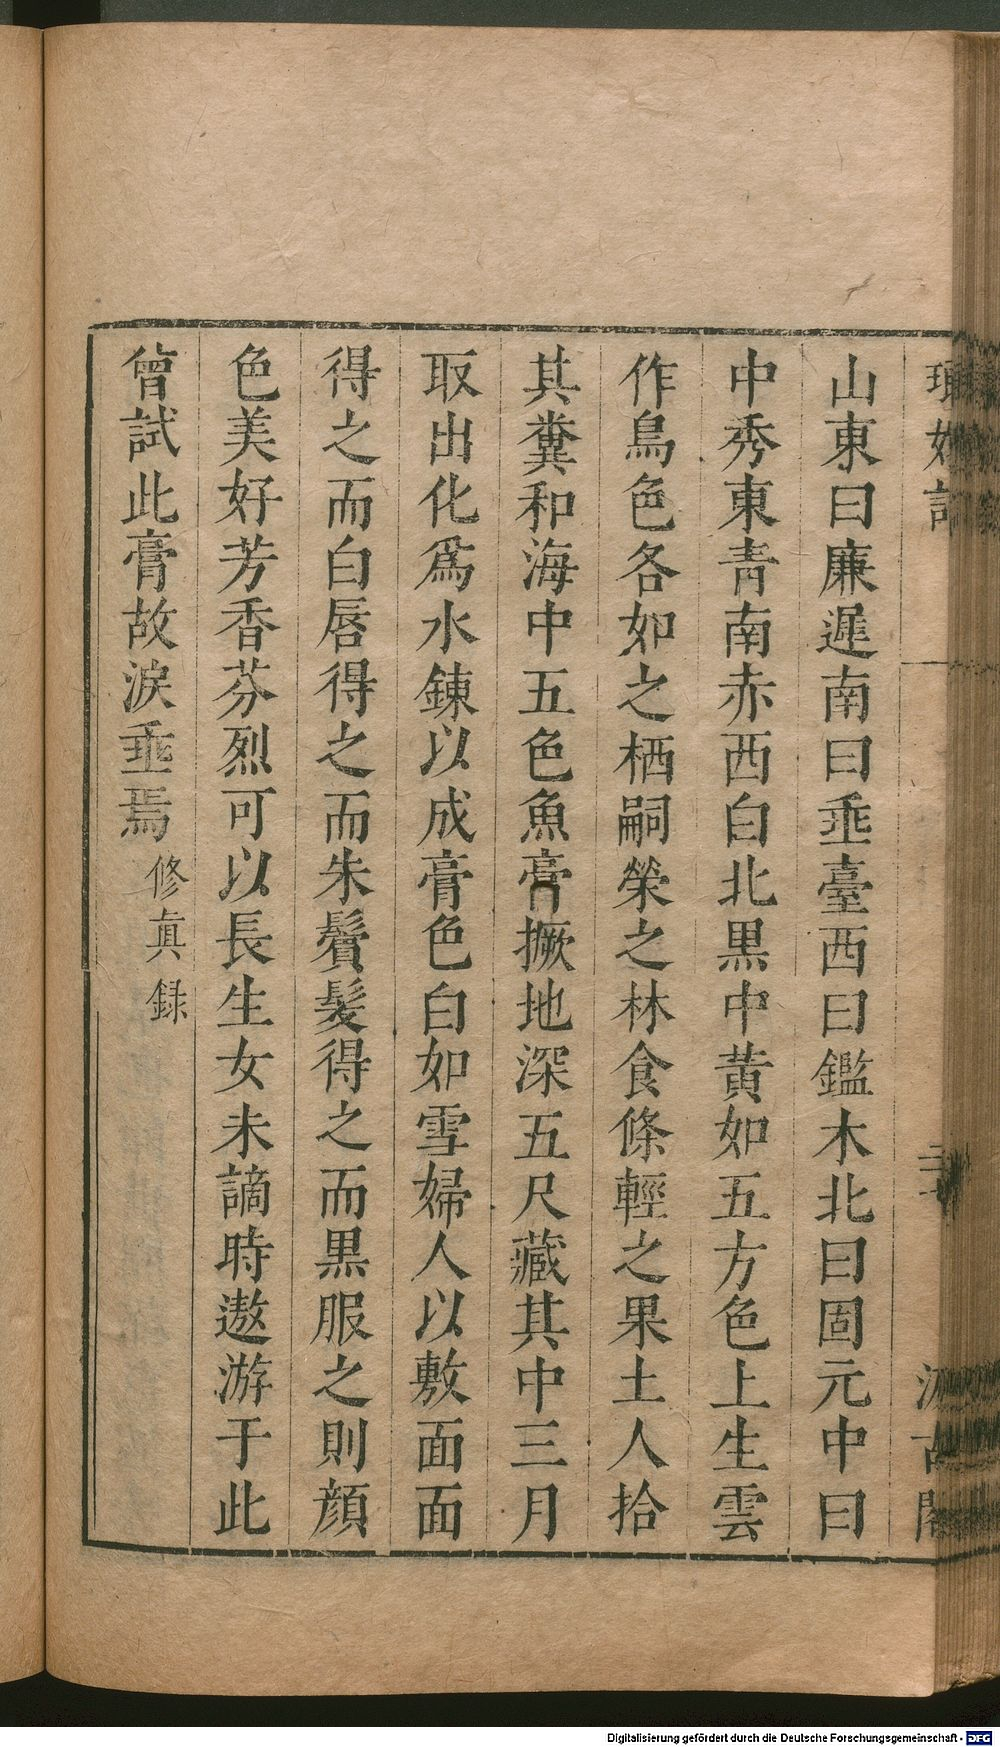 山東曰廉遲南曰垂臺西曰鑑木北曰固元中曰
中秀東青南赤西白北黒中黄如五方色上生雲
作鳥色各如之栖嗣榮之林食條輕之果土人拾
其糞和海中五色魚膏撅地深五尺藏其中三月
取出化爲水錬以成膏色白如雪婦人以敷面面
得之而白唇得之而朱鬢髮得之而黒服之則顔
色美好芳香芬烈可以長生女未謫時遨游于此
曾試此膏故淚垂焉 修眞録
Digitalisierung gefördert durch die Deutsche Forschungsgemeinschaft - DFG